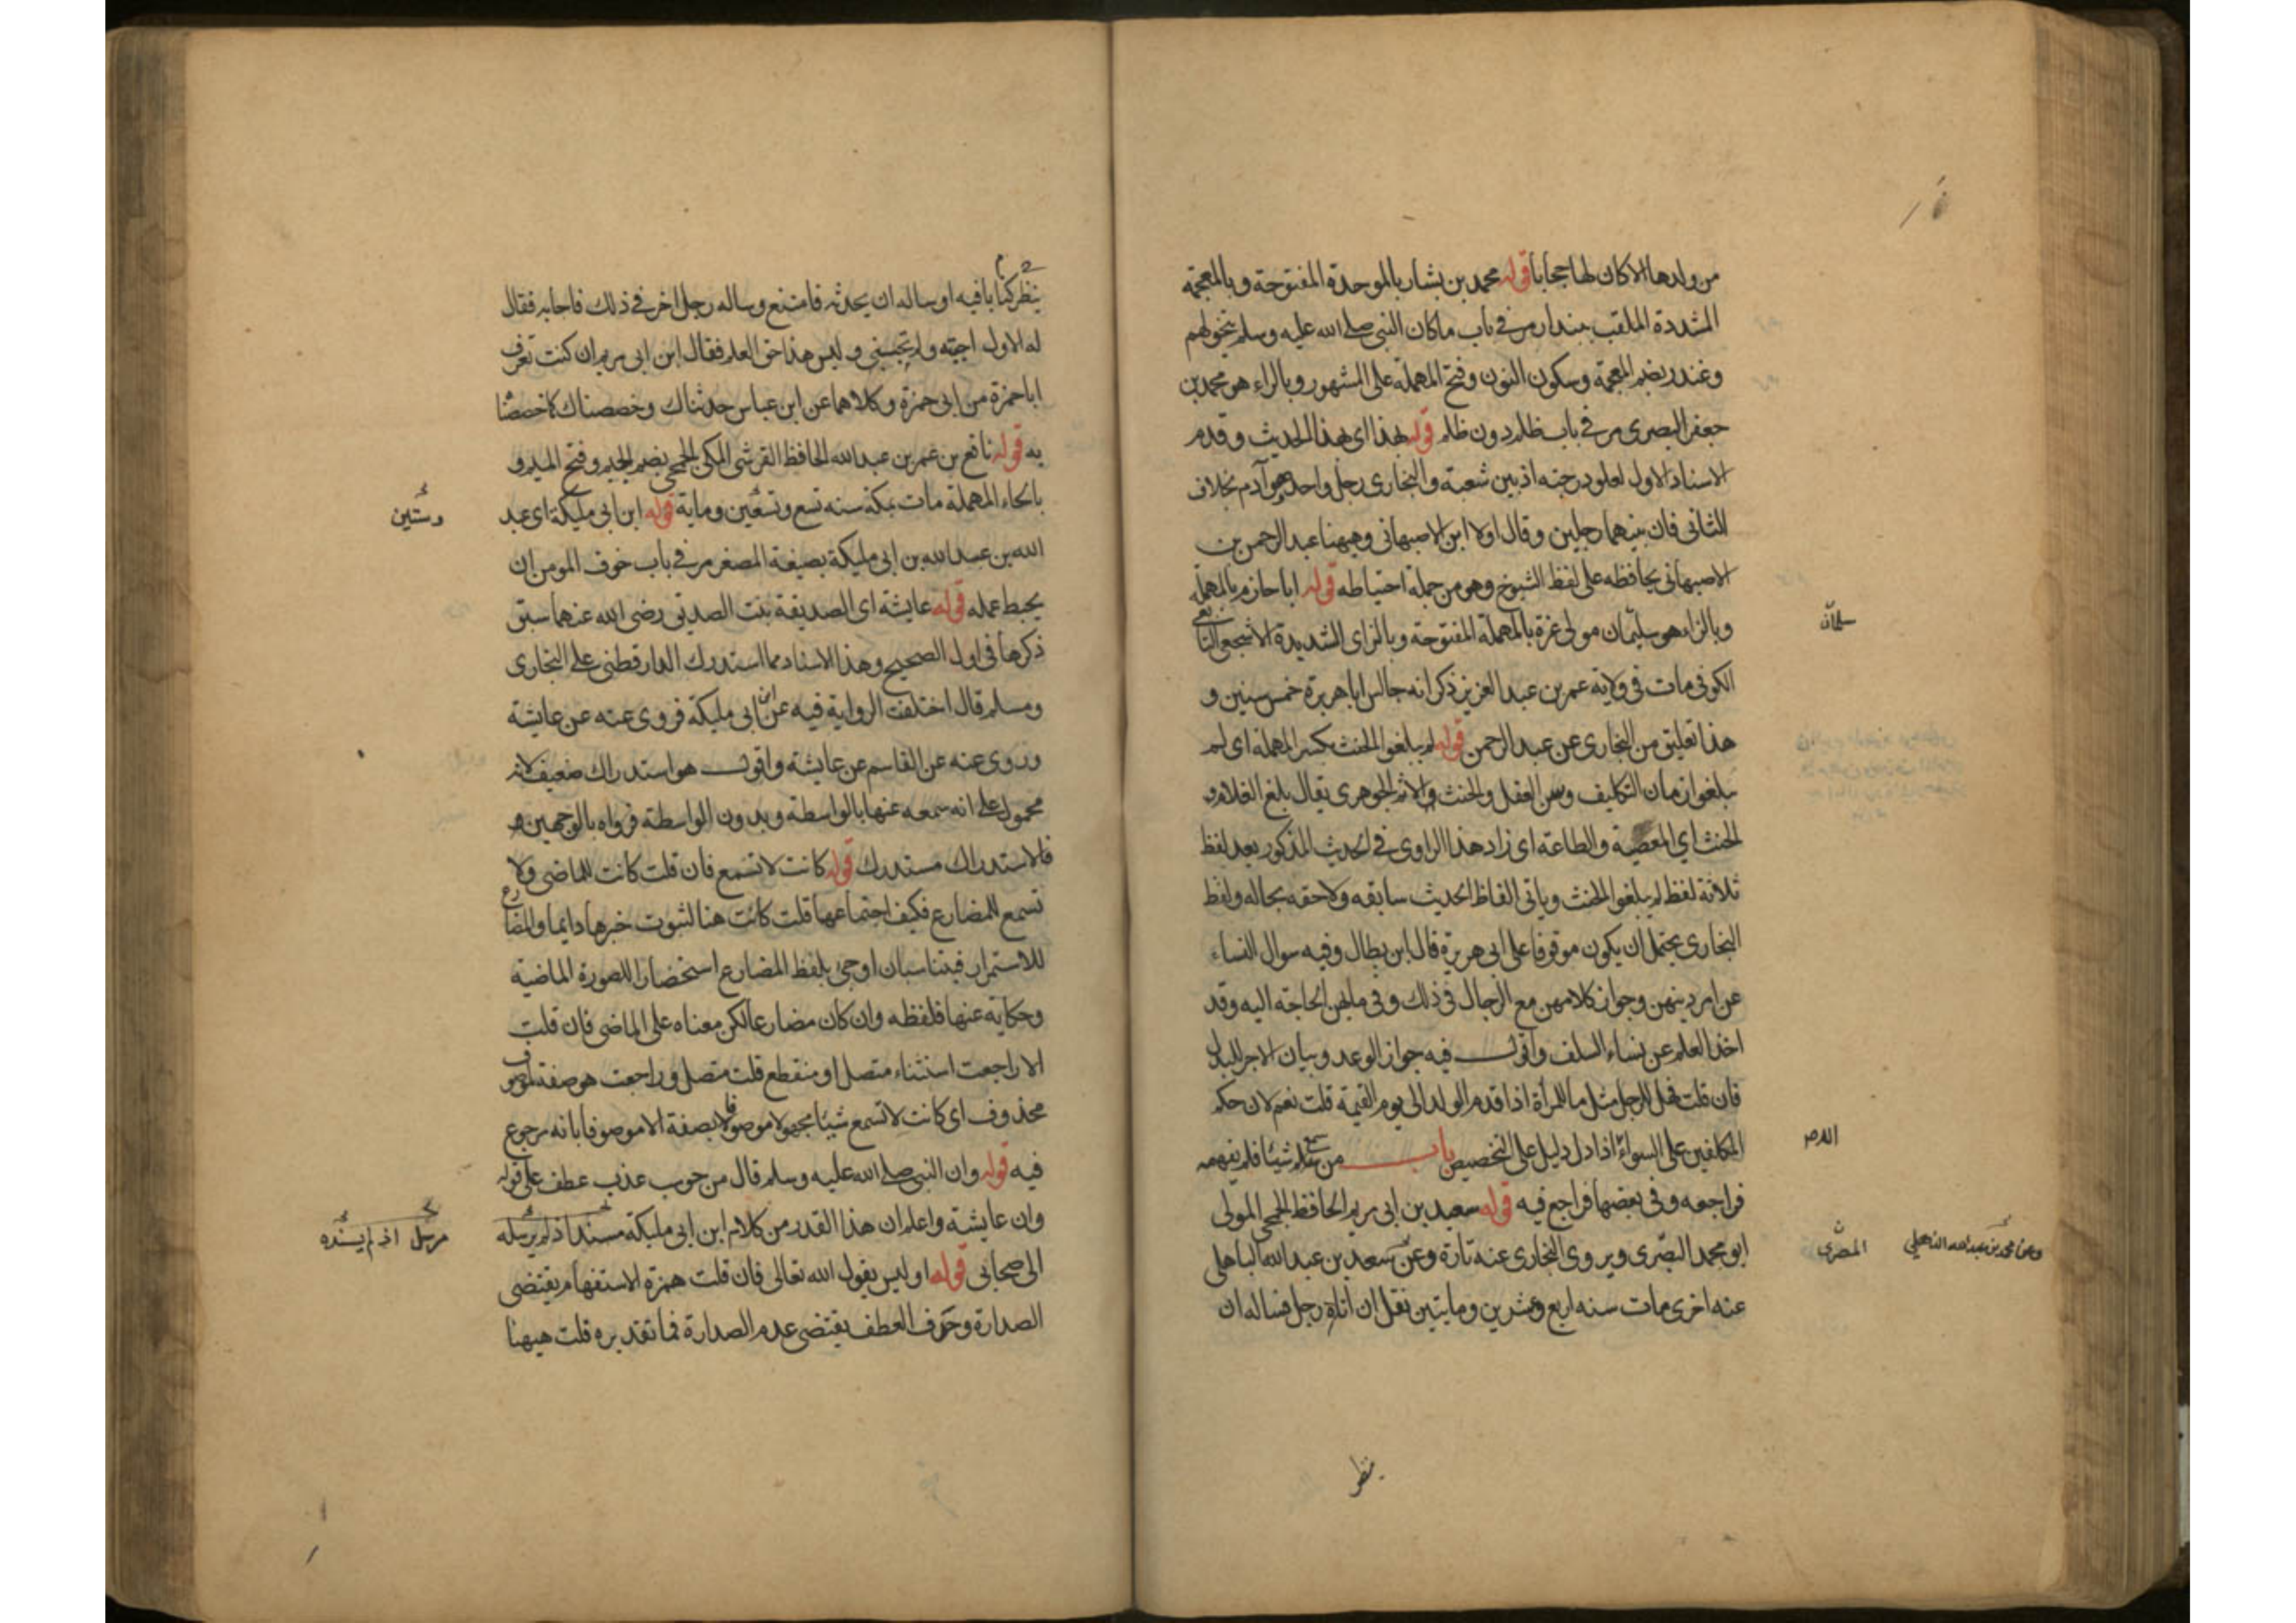 من ولدها الا كان لها حجابا قوله محمد بن بشار بالموحدة المفتوحة وبالمعجمة
المشددة الملقب ببندار مر في باب ما كان النبي صلى الله عليه وسلم يتخولهم
وغندر بضم المعجمة وسكون النون وفتح المهملة على المشهور وبالراء هو محمد بن
جعفر البصرى مر في باب ظلم دون ظلم قوله بهذا اى بهذا الحديث وقدم
الاسناد الاول لعلو درجته اذ بين شعبة والبخارى رجل واحد وهو آدم بخلاف
الثانى فان بينهما رجلين وقال اولا ابن الاصبهانى وههنا عبد الرحمن بن
الاصبهانى محافظه على لفظ الشيوخ وهو من جملة احتياطه قوله ابا حازم بالمهملة
وبالزاء هو سليمان مولى عزة بالمهملة المفتوحة وبالزاى الشديدة الاشجعى التابعى
سلمان
الكوفى مات فى ولاية عمر بن عبد العزيز ذكر انه جالس ابا هريرة خمس سنين و
هذا تعليق من البخارى عن عبد الرحمن قوله لم يبلغوا الحنث بكسر المهملة اى لم
يبلغوا زمان التكليف وسن العقل والحنث الاثم الجوهرى يقال بلغ الغلام
الحنث اي المعصية والطاعة اى زاد هذا الراوى فى الحديث المذكور بعد لفظ
ثلاثة لفظ لم يبلغوا الحنث وياتى الفاظ الحديث سابقه ولاحقه بحاله ولفظ
البخارى يحتمل ان يكون موقوفا على ابى هريرة قال ابن بطال وفيه سوال النساء
عن امر دينهن وجواز كلامهن مع الرجال فى ذلك وفى ما لهن الحاجة اليه وقد
اخذ العلم عن نساء السلف واقول فيه جواز الوعد وبيان الاجر
فان قلت فهل للرجل مثل ما للمرأة اذا قدم الولد الى يوم القيمة قلت نعم لان حكم
المكلفين على السواء اذا دل دليل على التخصيص باب من شيئا فلم يفهمه
فراجعه وفى بعضها فراجع فيه قوله سعيد بن ابى مريم الحافظ الجمحى المولى
ابو محمد البصرى ويروى البخارى عنه تارة وعن سعيد بن عبد الله الباهلى
المصرى
وعن محمد بن عبد الله الذهلى
عنه اخرى مات سنه اربع وعشرين ومايتين نقل ان اتاه رجل فساله ان
ينظر
ينظر كتابا فيه او ساله ان يحدثه فامتنع وساله رجل اخر فى ذلك فاجابه فقال
له الاول اجبته ولم تجبنى وليس هذا حق العلم فقال ابن ابى مريم ان كنت تعرف
ابا حمزة من ابى جمرة وكلاهما عن ابن عباس حدثناك وخصصناك كما خصصنا
به قوله نافع بن عمر بن عبد الله الحافظ القرشى المكى الجمحى بضم الجيم وفتح الميم و
بالحاء المهملة مات بمكة سنه تسع وتسعين وماية قوله ابن ابى مليكة اى عبد
وستين
الله بن عبد الله بن ابى مليكة بصيغة المصغر مر فى باب خوف المومن ان
يحبط عمله قوله عايشة اى الصديقة بنت الصديق رضى الله عنهما سبق
ذكرها فى اول الصحيح وهذا الاسناد مما استدرك الدارقطنى على البخارى
ومسلم قال اختلفت الرواية فيه عن ابن ابى مليكة فروى عنه عن عايشة
وروى عنه عن القاسم عن عايشة واقول هو استدراك ضعيف لانه
محمول على انه سمعه عنها بالواسطة وبدون الواسطة فرواه بالوجهين
فالاستدراك مستدرك قوله كانت لا تسمع فان قلت كانت للماضى ولا
تسمع للمضارع فكيف اجتماعهما قلت كانت هنا لثبوت خبرها دايما والمضارع
للاستمرار فيتناسبان او جئ بلفظ المضارع استحضارا للصورة الماضية
وحكاية عنها فلفظه وان كان مضارعا لكن معناه على الماضى فان قلت
الا راجعت استثناء متصل او منقطع قلت متصل وراجعت هو صفة لموصوف
محذوف اى كانت لا تسمع شيئا مجهولا موصوفا بصفة الا موصوفا بانه مرجوع
فيه قوله وان النبى صلى الله عليه وسلم قال من حوسب عذب عطف على قوله
وان عايشة واعلم ان هذا القدر من كلام ابن ابى مليكة مسندا ذ لم يرسله
مرسل اذ لم يسنده
الى صحابى قوله اوليس يقول الله تعالى فان قلت همزة الاستفهام يقتضى
الصدارة وحرف العطف يقتضى عدم الصدارة فما تقديره قلت ههنا